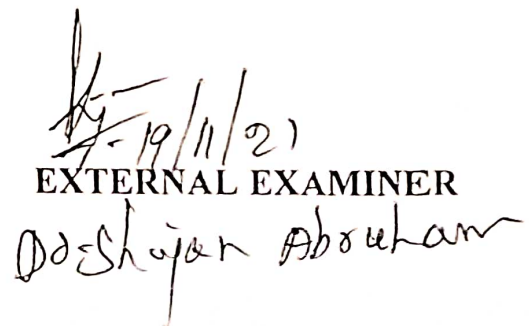 19/11/21
EXTERNAL EXAMINER
Dr. Shajan Abraham